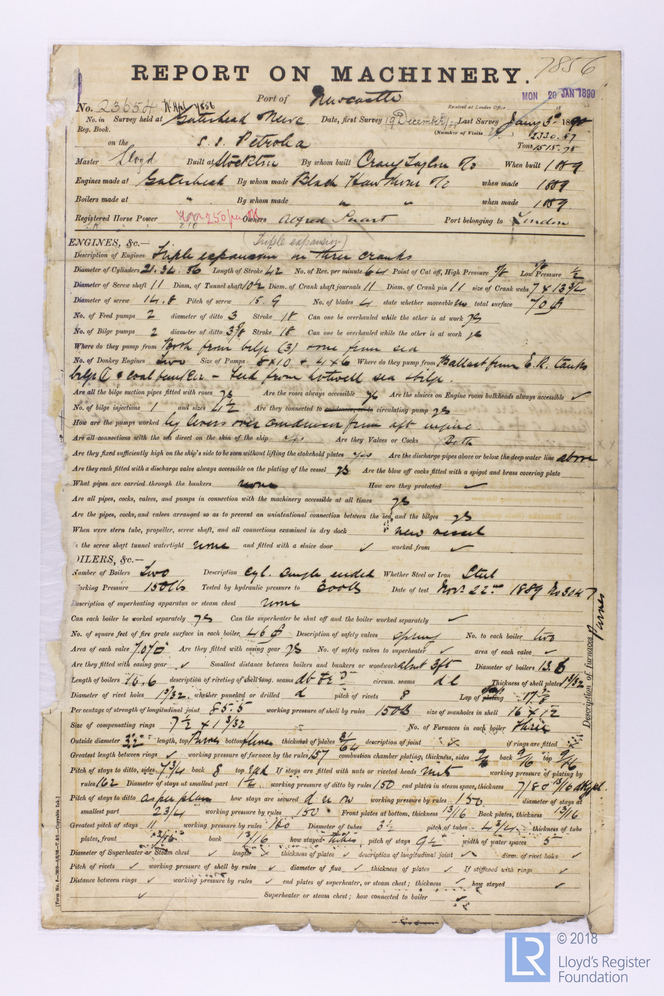 7856
REPORT ON MACHINERY.
Port of Newcastle
Received at London Office MON 20 JAN 1890
No. 23654
No. in Survey held at Gateshead Date, first Survey 19 December Last Survey Jany 3rd 1890
Reg. Book. (Number of Visits
on the S.S. Petrolia Tons 2320.57 1515.78
Master Lloyd Built at Stockton By whom built Craig Taylor & Co When built 1889
Engines made at Gateshead By whom made Black Hawthorn & Co when made 1889
Boilers made at " By whom made " " when made 1889
Registered Horse Power 250 Owners Alfred Port belonging to London
(Triple expansion)
ENGINES, &c.—
Description of Engines Triple expansion on three cranks
Diameter of Cylinders 21. 36. 56 Length of Stroke 42 No. of Rev. per minute 64 Point of Cut off, High Pressure 5/8 Low Pressure 1/2
Diameter of Screw shaft 11 Diam. of Tunnel shaft 10 1/2 Diam. of Crank shaft journals 11 Diam. of Crank pin 11 size of Crank webs 7 x 13 3/4
Diameter of screw 14.8 Pitch of screw 15.9 No. of blades 4 state whether moveable no total surface 70
No. of Feed pumps 2 diameter of ditto 3 Stroke 18 Can one be overhauled while the other is at work yes
No. of Bilge pumps 2 diameter of ditto 3 3/8 Stroke 18 Can one be overhauled while the other is at work yes
Where do they pump from Both from bilge (3) & one from sea
No. of Donkey Engines Two Size of Pumps 8 x 10 & 4 x 6 Where do they pump from Ballast from E.R. tanks
bilge & coal bunker – Feed from hotwell sea & bilge.
Are all the bilge suction pipes fitted with roses yes Are the roses always accessible yes Are the sluices on Engine room bulkheads always accessible ✓
No. of bilge injections 1 and sizes 4 1/2 Are they connected to circulating pump yes
How are the pumps worked by levers over condenser from aft engine.
Are all connections with the sea direct on the skin of the ship yes Are they Valves or Cocks Both
Are they fixed sufficiently high on the ship's side to be seen without lifting the stokehold plates yes Are the discharge pipes above or below the deep water line above
Are they each fitted with a discharge valve always accessible on the plating of the vessel yes Are the blow off cocks fitted with a spigot and brass covering plate
What pipes are carried through the bunkers none How are they protected ✓
Are all pipes, cocks, valves, and pumps in connection with the machinery accessible at all times yes
Are the pipes, cocks, and valves arranged so as to prevent an unintentional connection between the sea and the bilges yes
When were stern tube, propeller, screw shaft, and all connections examined in dry dock new vessel
the screw shaft tunnel watertight none and fitted with a sluice door ✓ worked from ✓
OILERS, &c.—
Number of Boilers Two Description Cyl. single ended Whether Steel or Iron Steel
orking Pressure 150 lbs Tested by hydraulic pressure to 300 lbs Date of test Novr 22nd 1889 No 3047
Description of superheating apparatus or steam chest none
Can each boiler be worked separately yes Can the superheater be shut off and the boiler worked separately ✓
No. of square feet of fire grate surface in each boiler 46 Description of safety valves spring No. to each boiler two
Area of each valve 7.070 Are they fitted with easing gear yes No. of safety valves to superheater ✓ area of each valve ✓
Are they fitted with easing gear ✓ Smallest distance between boilers and bunkers or woodwork about 3 ft Diameter of boilers 13.6
Length of boilers 16.6 description of riveting of shell long. seams circum. seams d l Thickness of shell plates 1 1/32
Diameter of rivet holes 1 3/32 whether punched or drilled d pitch of rivets 8 Lap of plating
Per centage of strength of longitudinal joint 85.5 working pressure of shell by rules 150 lb size of manholes in shell 16 x 12
Size of compensating rings 7 1/2 x 1 3/32 No. of Furnaces in each boiler Three
Description of Furnaces Purves
Outside diameter length, top Purves bottom thickness of plates description of joint if rings are fitted
Greatest length between rings ✓ working pressure of furnace by the rules 157 combustion chamber plating, thickness, sides 9/16 back 9/16 top 9/16
Pitch of stays to ditto, sides 7 3/4 back 8 top If stays are fitted with nuts or riveted heads nuts working pressure of plating by
rules 162 Diameter of stays at smallest part working pressure of ditto by rules 150 end plates in steam space, thickness
Pitch of stays to ditto as per plan how stays are secured d n & w working pressure by rules 150 diameter of stays at
smallest part 2 3/4 working pressure by rules 150 Front plates at bottom, thickness 13/16 Back plates, thickness 13/16
Greatest pitch of stays 11 working pressure by rules 160 Diameter of tubes 3 1/2 pitch of tubes 4 3/4 thickness of tube
plates, front back 13/16 how stayed tubes pitch of stays 9 1/2 width of water spaces 5
Diameter of Superheater or Steam chest ✓ length ✓ thickness of plates ✓ description of longitudinal joint ✓ diam. of rivet holes ✓
Pitch of rivets ✓ working pressure of shell by rules ✓ diameter of flue ✓ thickness of plates ✓ If stiffened with rings ✓
Distance between rings ✓ working pressure by rules ✓ end plates of superheater, or steam chest; thickness ✓ how stayed ✓
Superheater or steam chest; how connected to boiler
LR
© 2018
Lloyd's Register
Foundation